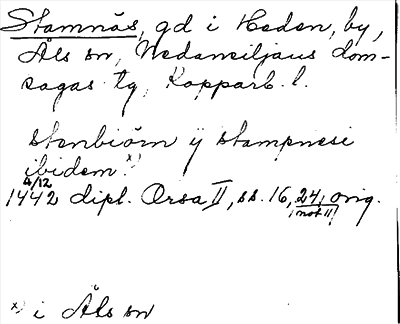 Stamnäs, gd i Heden, by,
Åls sn, Nedansiljans dom-
sagas tg, Kopparb. l.
stenbiörn ÿ stampnesi
ibidem. x)
4/12
1442 dipl. Orsa II, ss. 16, 24, orig.
(not 11)
x) i Åls sn